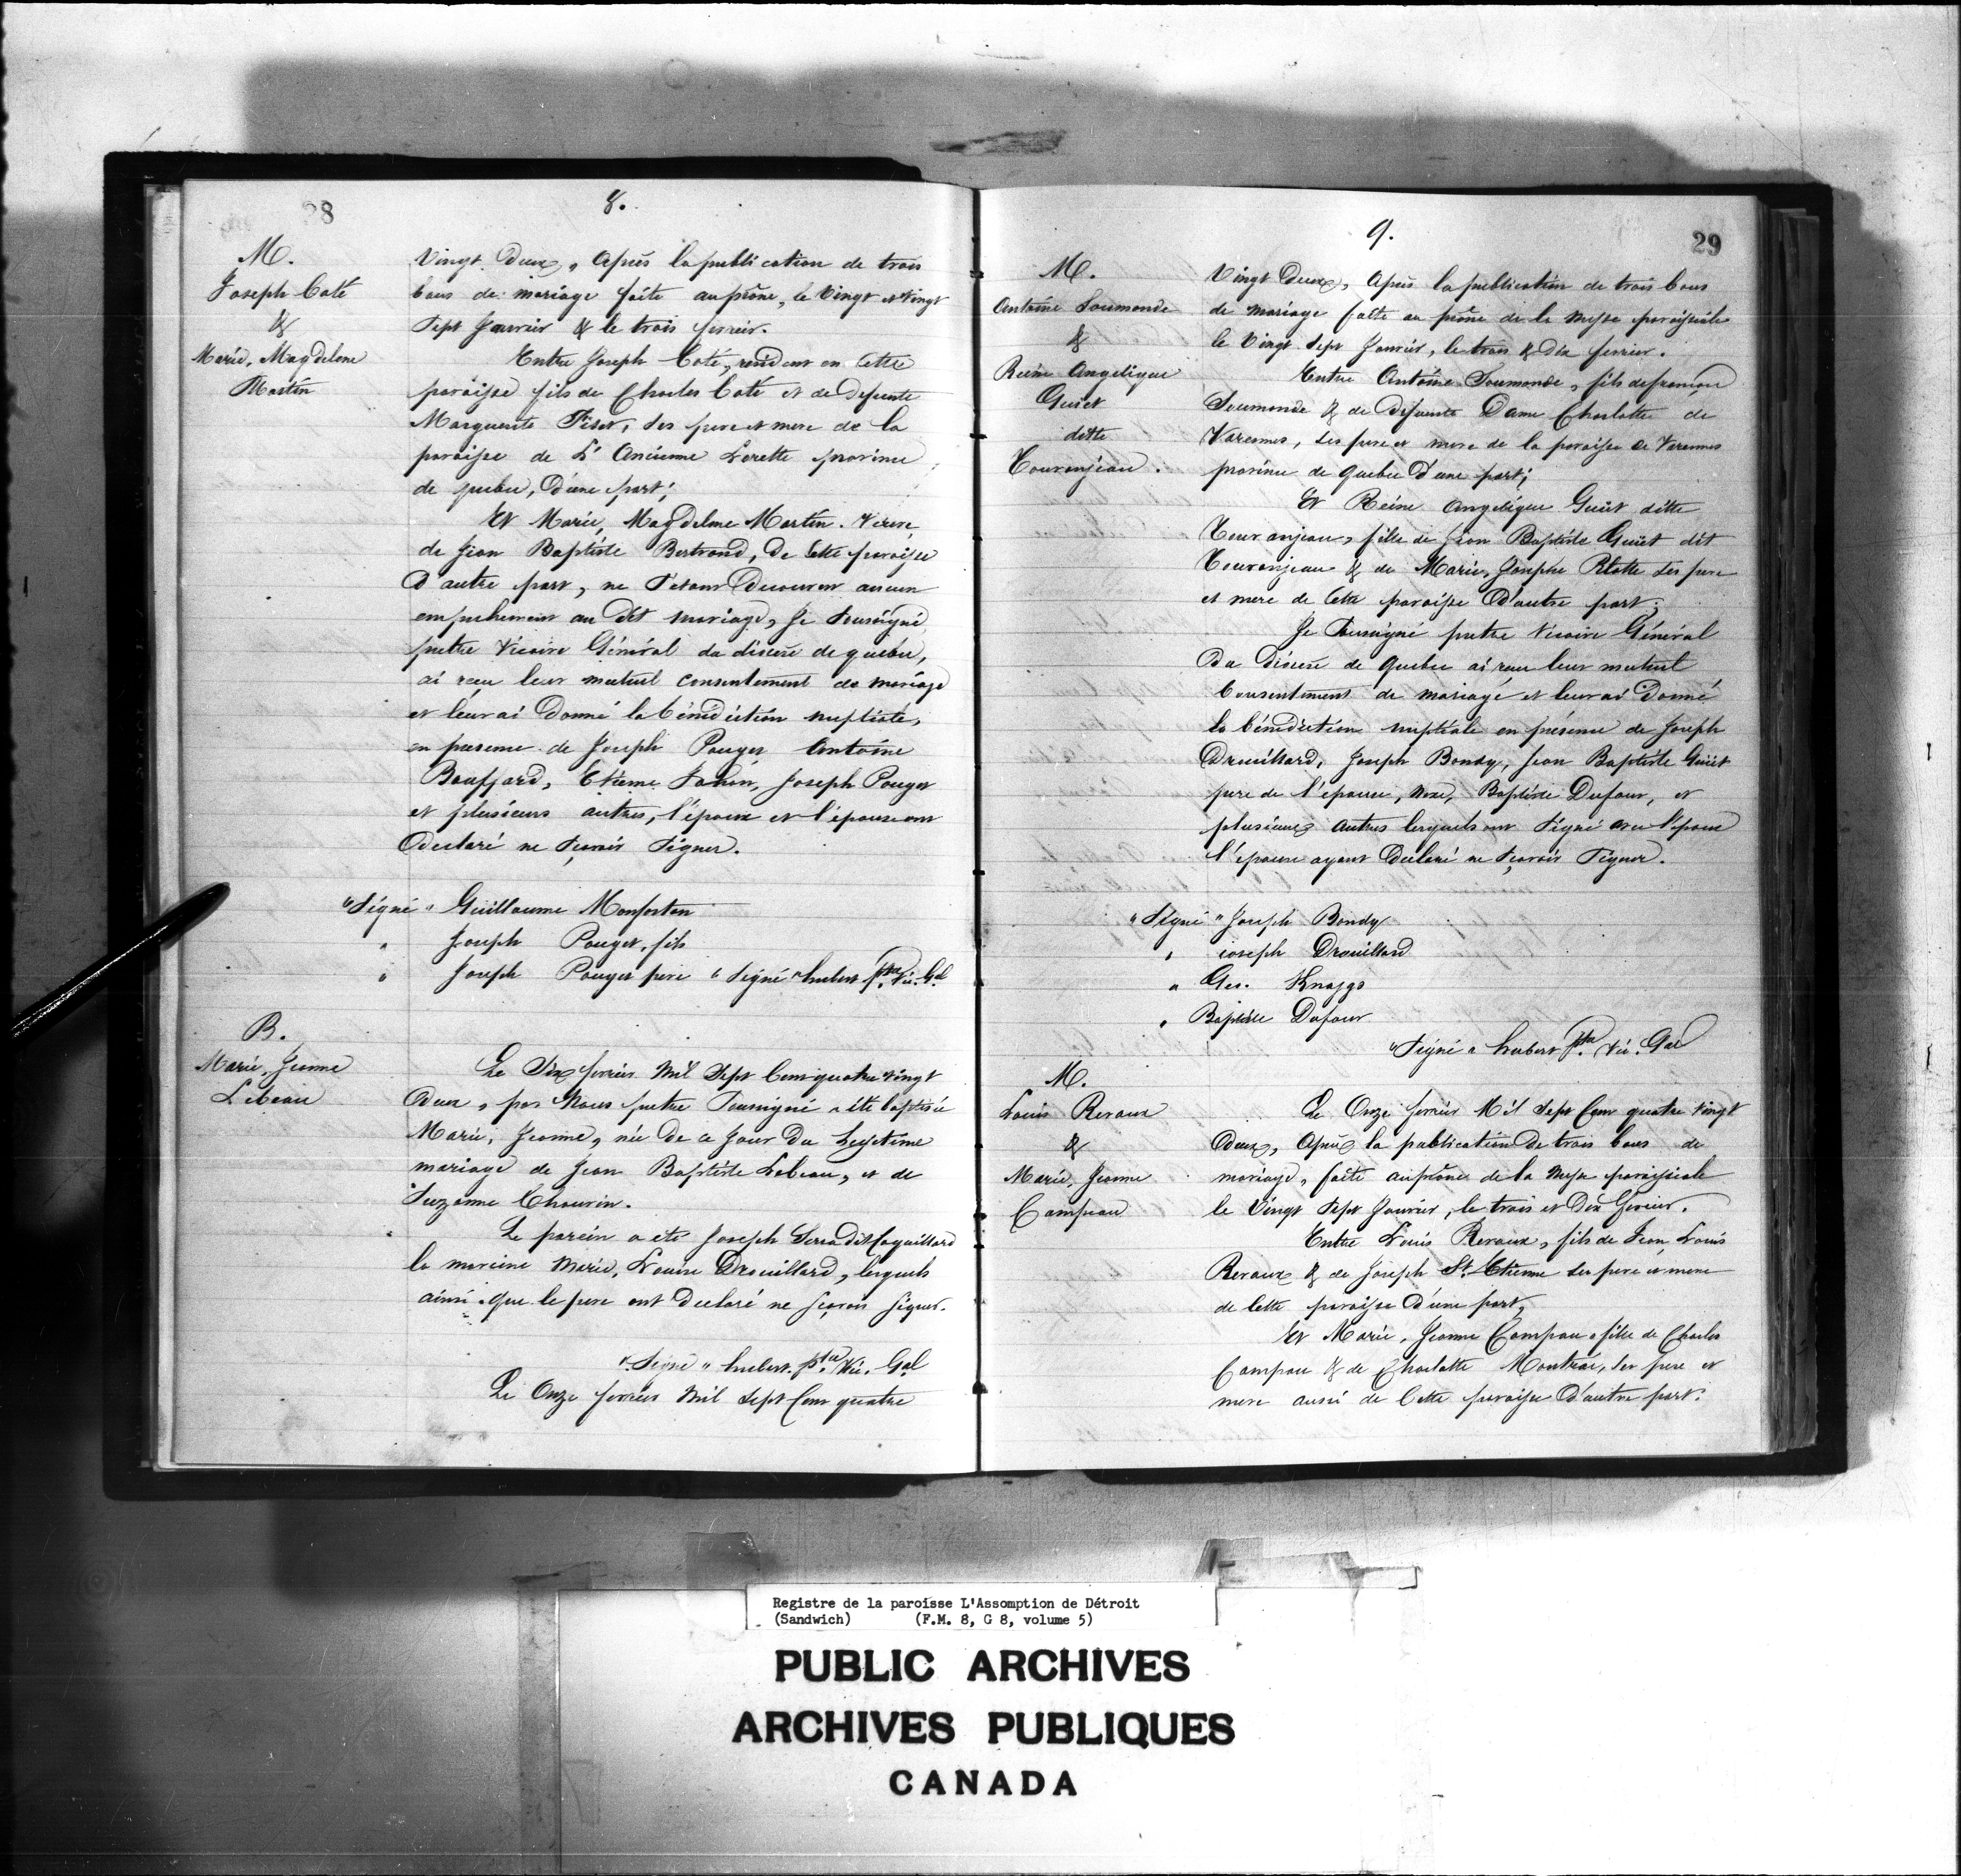 28
8.
M.
Joseph Coté
&
Marie, Magdelene
Martin
Vingt Deux, Après la publication de trois
bans de mariage faite au prône, le Vingt et Vingt
Sept Janvier & le trois fevrier.
Entre Joseph Coté, residant en Cette
paroisse fils de Charles Coté et de defunte
Marguerite Fiset, ses pere et mere de la
paroisse de L'Ancienne Lorette province
de quebec, D'une part;
Et Marie, Magdelene Martin. Veuve
de Jean Baptiste Bertrand, De Cette paroisse
D'autre part, ne S'etant Decouvert aucun
empechement au dit mariage, Je Soussigné
prêtre Vicaire Général du diocese de quebec,
ai reçu leur mutuel consentement de mariage
et leur ai Donné la bénédiction nuptiale,
en presence de Joseph Pouget Antoine
Bouffard, Etienne Robin, Joseph Pouget
et plusieurs autres, l'époux et l'épouse ont
Declaré ne Scavoir Signer.
"Signé" Guillaume Monforton
" Joseph Pouget, fils
" Joseph Pouget pere "Signé" hubert ptre Vic. Gal
B.
Marie, Jeanne
Lebeau
Le Dix fevrier Mil Sept Cent quatre vingt
Deux, par Nous prêtre Soussigné a été baptisée
Marie, Jeanne, née De ce Jour Du Legitime
mariage de Jean Baptiste Lebeau, et de
Suzanne Chauvin.
Le parein a été Joseph Serra dit Coquillard
la mareine Marie, Louise Drouillard, lesquels
ainsi que le pere ont declaré ne sçavoir signer.
"Signé" hubert. ptre Vic. Gal
Le Onze fevrier Mil Sept Cent quatre
9.
29
M.
Antoine Soumonde
&
Reine Angelique
Guiet
ditte
Touronjeau.
Vingt Deux, Après la publication de trois bans
de mariage faite au prône de la Messe paroissiale
le Vingt Sept Janvier, le trois & dix fevrier.
Entre Antoine Soumonde, fils de françois
Soumonde & de Defunte Dame Charlotte de
Varennes, ses pere et mere de la paroisse de Varennes
province de quebec D'une part;
Et Reine Angelique Guiet ditte
Touranjeau, fille de Jean Baptiste Guiet dit
Touronjeau & de Marie, Josephe Pilotte ses pere
et mere de Cette paroisse D'autre part;
Je Soussigné pretre Vicaire Général
Du Diocese de Quebec ai reçu leur mutuel
Consentement de mariage et leur ai Donné
la bénédiction nuptiale en présence de Joseph
Drouillard, Joseph Bondy, Jean Baptiste Guiet
pere de l'épouse, Baptiste Dufour, et
plusieurs autres lesquels ont Signé avec l'époux
l'épouse ayant Declaré ne Scavoir Signer.
"Signé" Joseph Bondy
" ioseph Drouillard
" Geo. Knaggs
" Baptiste Dufour
"Signé" hubert ptre Vic. Gal
M.
Louis Revaux
&
Marie, Jeanne
Campeau
Le Onze fevrier Mil Sept Cent quatre Vingt
Deux, Après la publication De trois bans de
mariage, faite au prône de la Messe paroissiale
le Vingt Sept Janvier, le trois et Dix fevrier.
Entre Louis Revaux, fils de Jean Louis
Revaux & de Joseph St. Etienne ses pere et mere
de Cette paroisse D'une part,
Et Marie, Jeanne Campau, fille de Charles
Campau & de Charlotte Montrai, ses pere et
mere aussi de Cette paroisse D'autre part.
Registre de la paroisse L'Assomption de Détroit
(Sandwich) (F.M. 8, G 8, volume 5)
PUBLIC ARCHIVES
ARCHIVES PUBLIQUES
CANADA